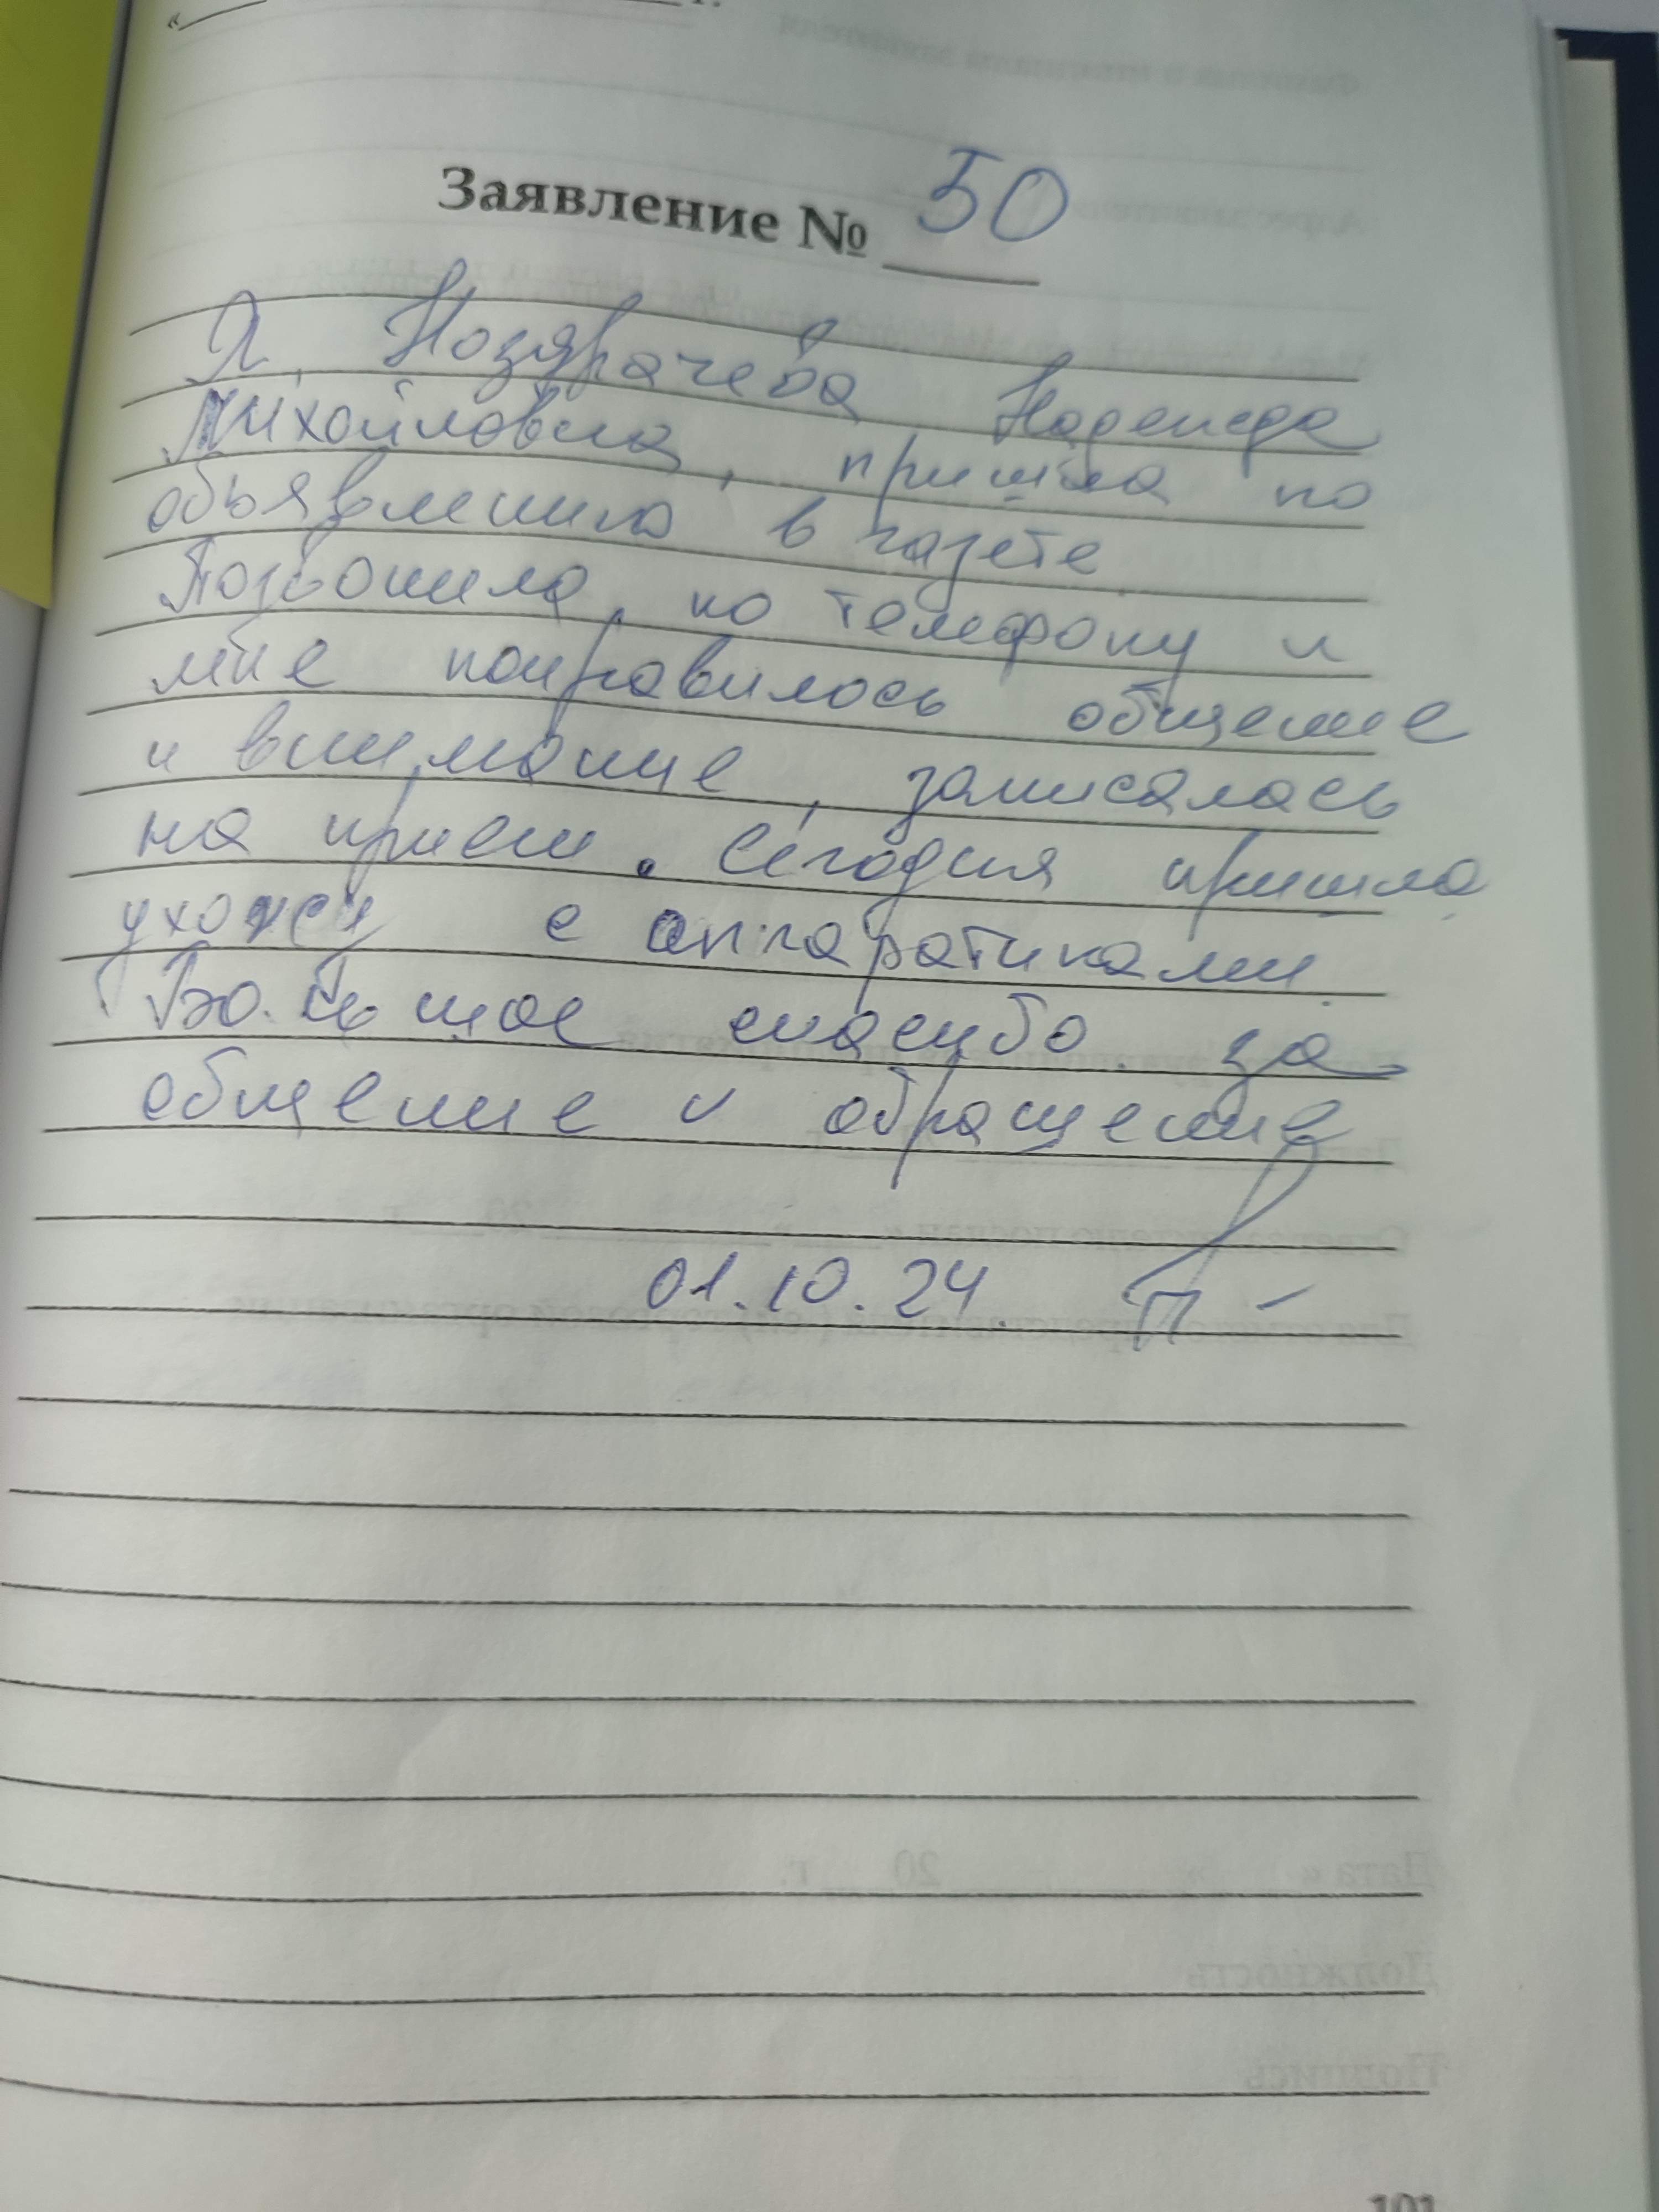 Заявление № 50
Я, Ноздрачева Надежда
Михайловна, пришла по
объявлению в газете
Позвонила, по телефону и
мне понравилось общение
и внимание, записалась
на прием. Сегодня пришла
ухожу с аппаратиками.
Большое спасибо за
общение и обращение
01.10.24
101